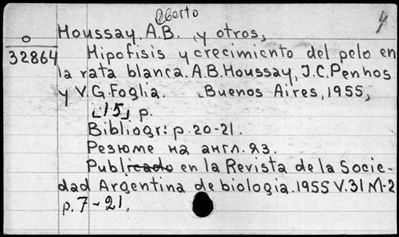 lberto
Houssay, A.B. , y otros,
O
32864
Hipofisis y crecimiento del pelo en
la rata blanca. A.B. Houssay, J.C. Penhos
y V.G. Foglia. Buenos Aires, 1955,
[15] p.
Bibliogr: p. 20-21.
Резюме на англ. яз.
Publicado en la Revista de la Socie-
dad Argentina de biologia. 1955 V.31 N1-2
p. 7-21.